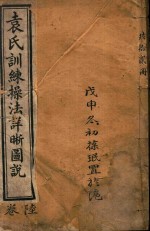 袁氏訓練操法詳晰圖說
陸卷
戊申冬初
置於滬